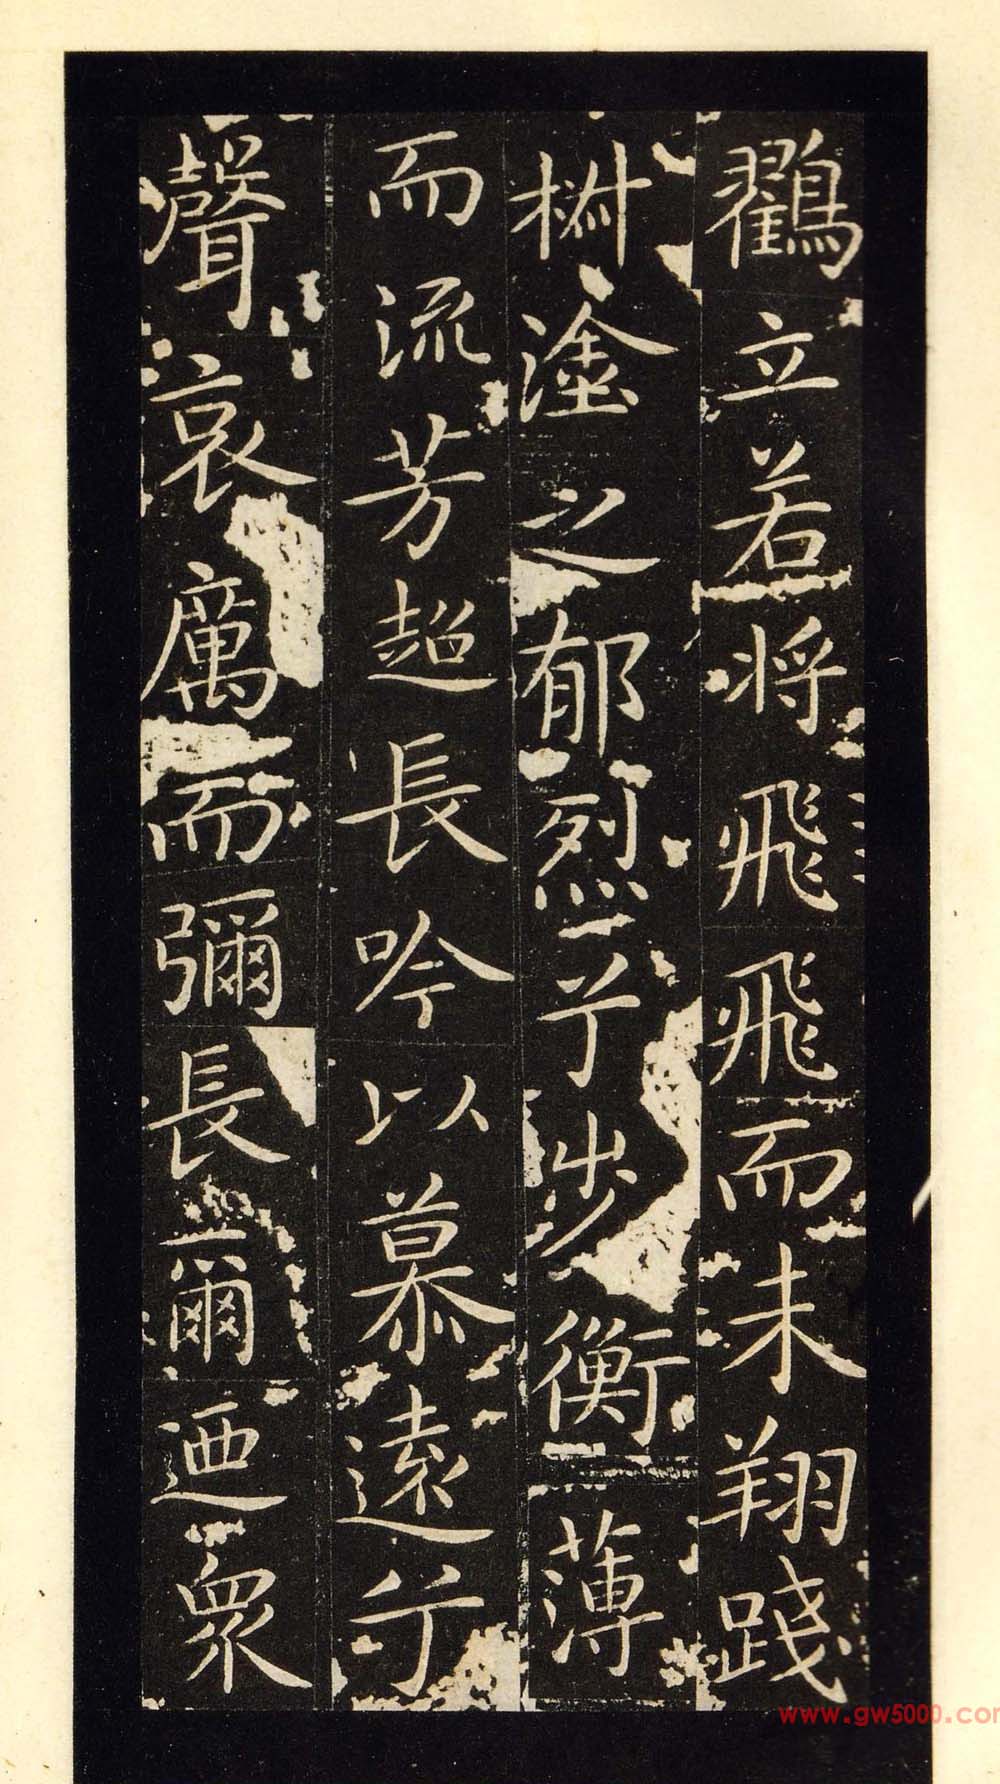 鸛立若將飛飛而未翔踐
椒塗之郁烈兮步衡薄
而流芳超長吟以慕遠兮
聲哀厲而彌長爾迺眾
www.gw5000.com